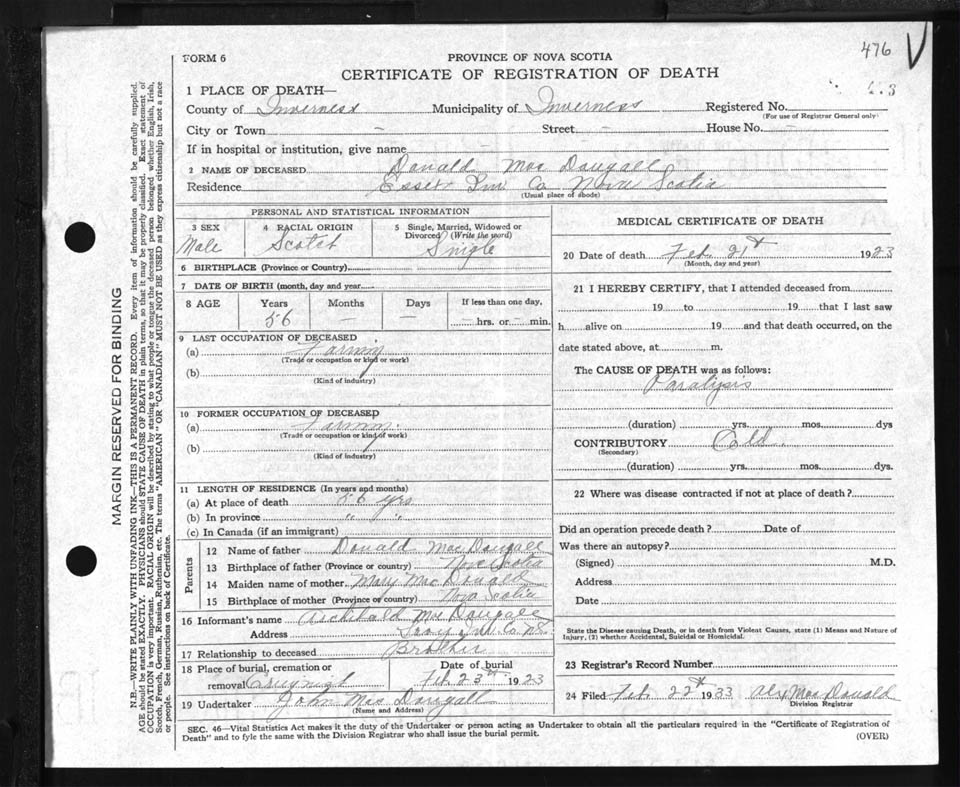 476
FORM 6
PROVINCE OF NOVA SCOTIA
CERTIFICATE OF REGISTRATION OF DEATH
1 PLACE OF DEATH—
County of Inverness Municipality of Inverness Registered No.
(For use of Registrar General only)
City or Town - Street - House No. -
If in hospital or institution, give name
2 NAME OF DECEASED Donald Mac Dougall
Residence Inv Co Nova Scotia
(Usual place of abode)
PERSONAL AND STATISTICAL INFORMATION
3 SEX 4 RACIAL ORIGIN 5 Single, Married, Widowed or Divorced (Write the word)
Male Scotch Single
6 BIRTHPLACE (Province or Country)
7 DATE OF BIRTH (month, day and year)
8 AGE Years Months Days If less than one day,
56 — — — hrs. or — min.
9 LAST OCCUPATION OF DECEASED
(a) Farming
(Trade or occupation or kind or work)
(b)
(Kind of industry)
10 FORMER OCCUPATION OF DECEASED
(a) Farming
(Trade or occupation or kind of work)
(b)
(Kind of industry)
11 LENGTH OF RESIDENCE (In years and months)
(a) At place of death 56 yrs
(b) In province " "
(c) In Canada (if an immigrant)
Parents
12 Name of father Donald Mac Dougall
13 Birthplace of father (Province or country) Nova Scotia
14 Maiden name of mother Mary Mac Donald
15 Birthplace of mother (Province or country) Nova Scotia
16 Informant's name Archibald Mac Dougall
Address Troy Inv Co N.S.
17 Relationship to deceased Brother
18 Place of burial, cremation or Date of burial
removal Craignish Feb 23rd 1923
19 Undertaker John Mac Dougall
(Name and Address)
MEDICAL CERTIFICATE OF DEATH
20 Date of death Feb 21st 1923
(Month, day and year)
21 I HEREBY CERTIFY, that I attended deceased from
19 to 19 that I last saw
h alive on 19 and that death occurred, on the
date stated above, at m.
The CAUSE OF DEATH was as follows:
Paralysis
(duration) yrs. mos. dys
CONTRIBUTORY Cold
(Secondary)
(duration) yrs. mos. dys.
22 Where was disease contracted if not at place of death?
Did an operation precede death? Date of
Was there an autopsy?
(Signed) M.D.
Address
Date
State the Disease causing Death, or in death from Violent Causes, state (1) Means and Nature of
Injury, (2) whether Accidental, Suicidal or Homicidal.
23 Registrar's Record Number
24 Filed Feb 22nd 1933 Alex Mac Donald
Division Registrar
SEC. 46—Vital Statistics Act makes it the duty of the Undertaker or person acting as Undertaker to obtain all the particulars required in the "Certificate of Registration of
Death" and to fyle the same with the Division Registrar who shall issue the burial permit.
(OVER)
MARGIN RESERVED FOR BINDING
N.B.—WRITE PLAINLY WITH UNFADING INK—THIS IS A PERMANENT RECORD. Every item of information should be carefully supplied.
AGE should be stated EXACTLY. PHYSICIANS should STATE CAUSE OF DEATH in plain terms, so that it may be properly classified. Exact statement of
OCCUPATION is very important. RACIAL ORIGIN will be described by stating to what people or tongue the deceased person belonged whether English, Irish,
Scotch, French, German, Russian, Ruthenian, etc. The terms "AMERICAN" OR "CANADIAN" MUST NOT BE USED as they express citizenship but not a race
or people. See instructions on back of Certificate.